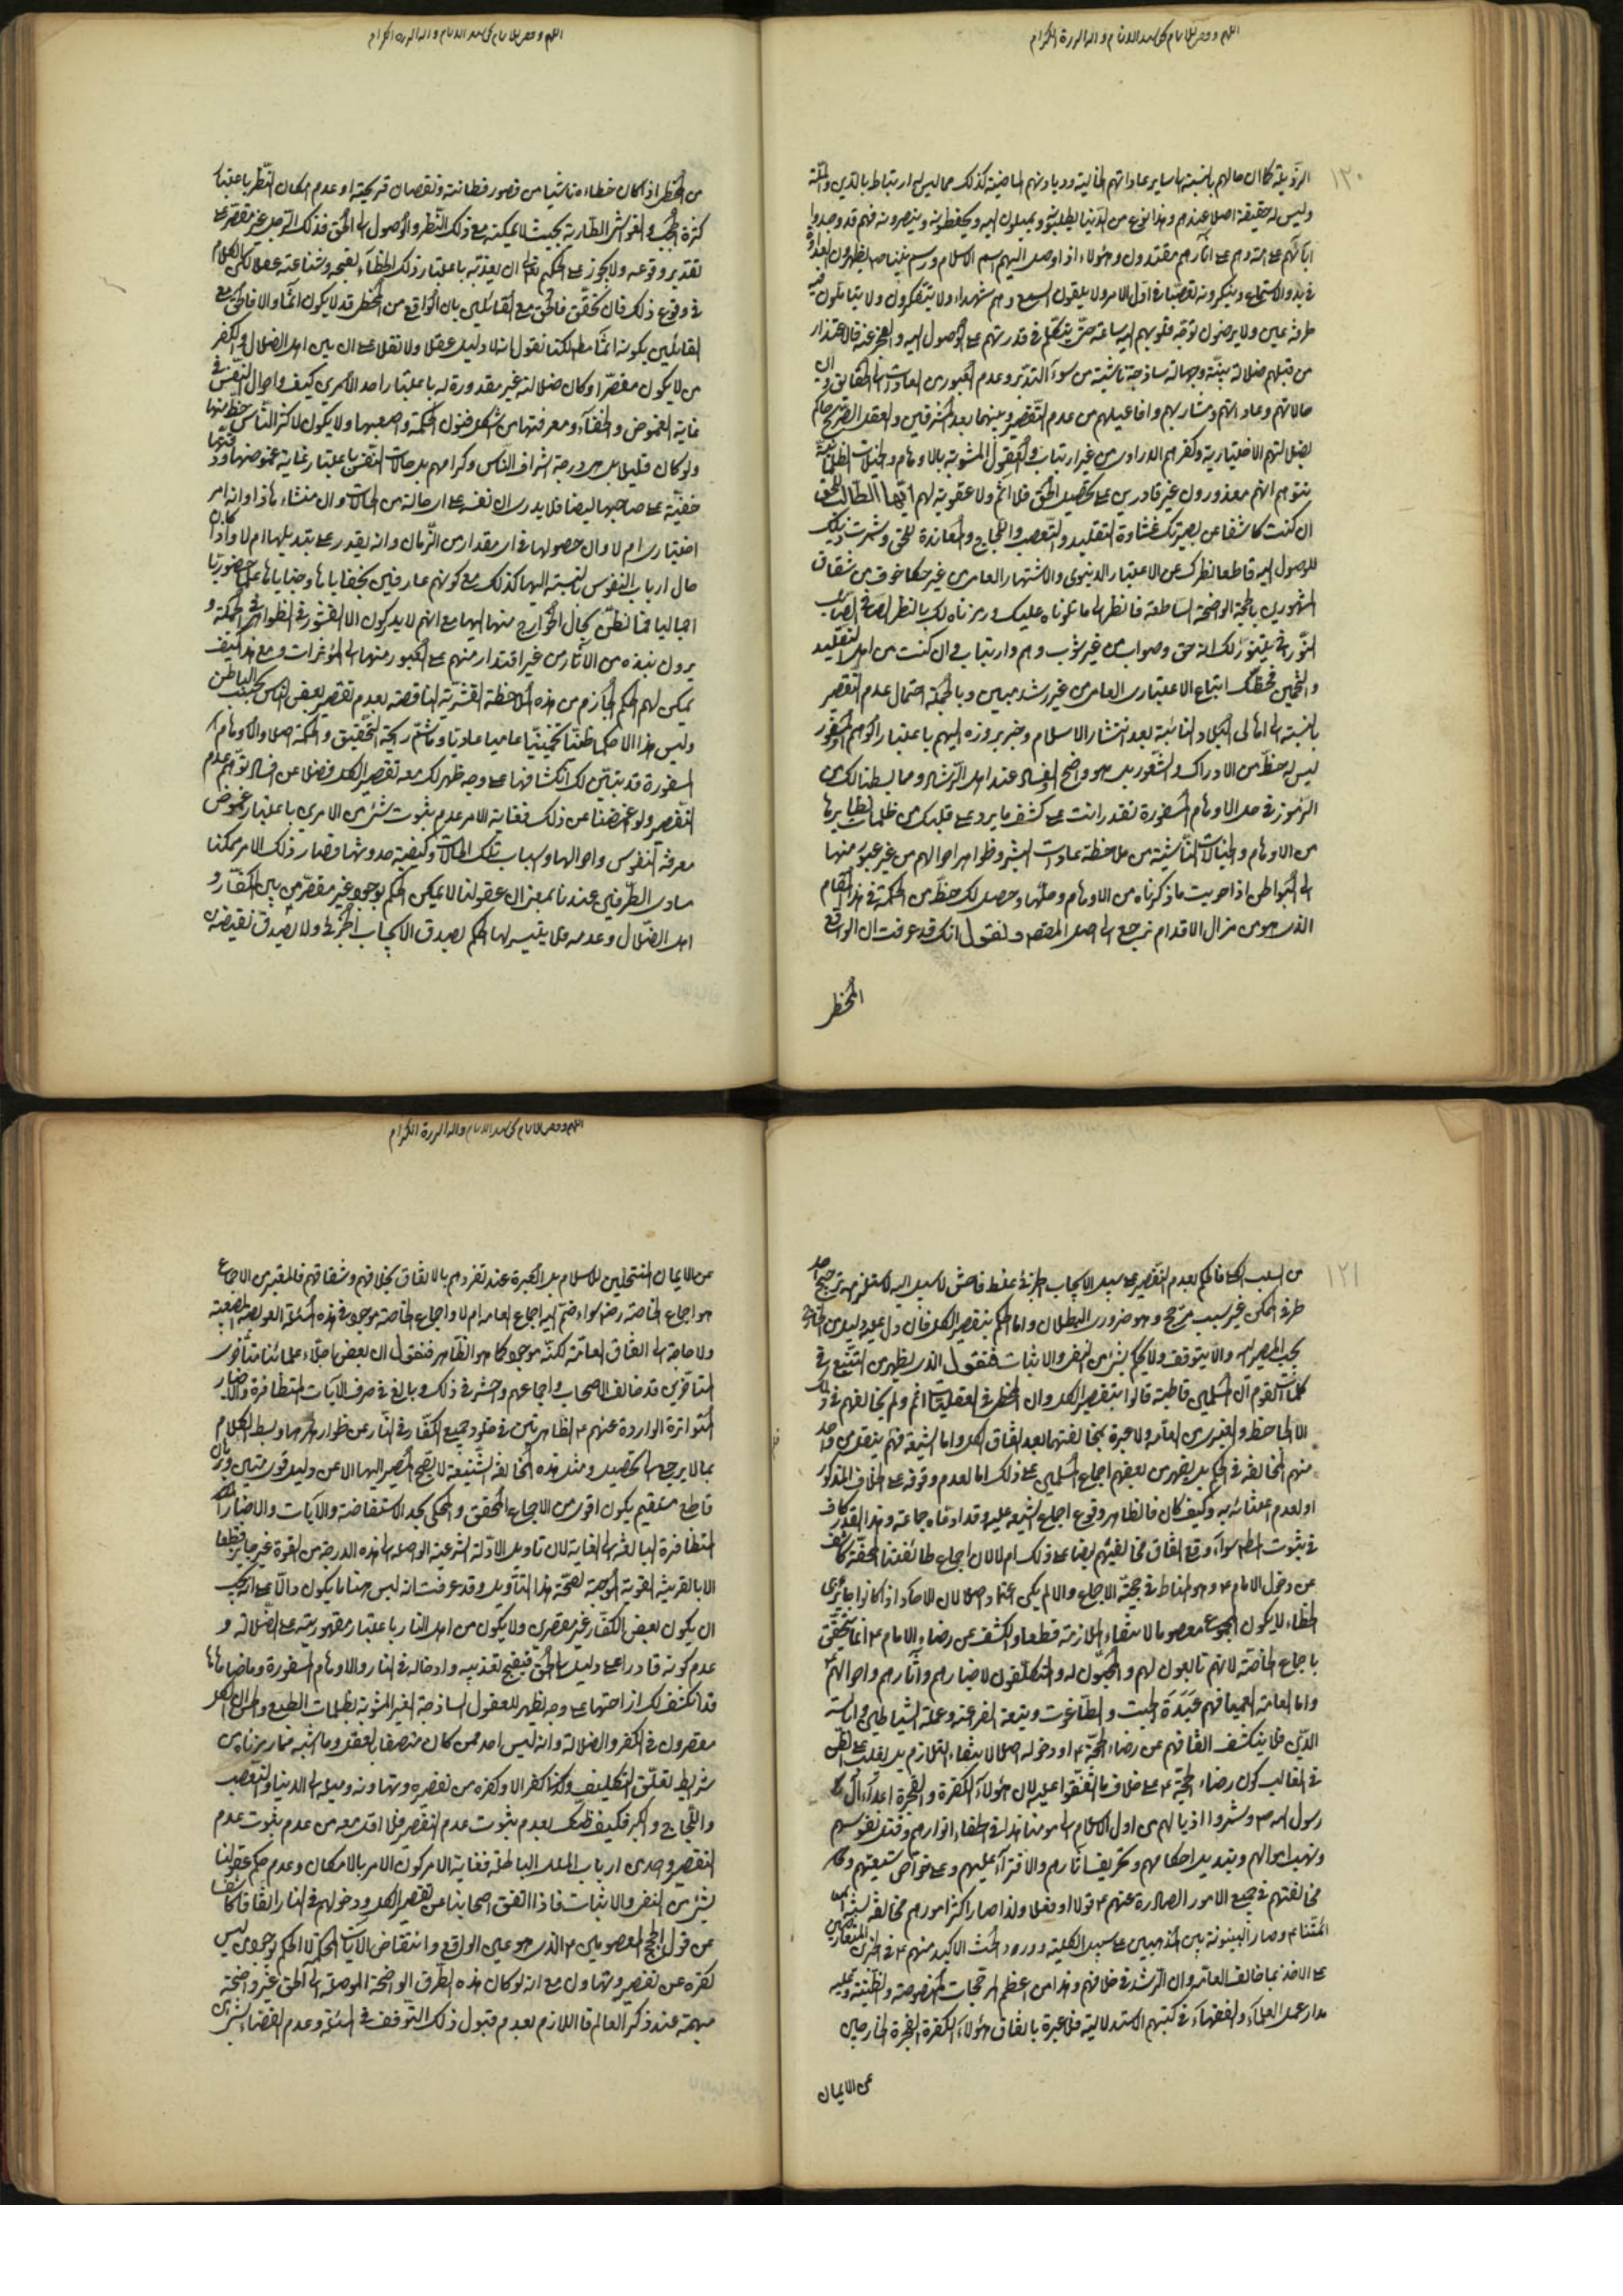 ١٢٠
الرذيلة كما ان حالهم بالنسبة الى ساير عاداتهم الخالية وديادنهم الماضية كذلك مما ليس له ارتباط بالدين والملة
وليس له حقيقة اصلا عندهم وهذا نوع من الدنيا يطلبونه ويميلون اليه ويحفظونه وينصرونه فهم قد وجدوا
آبائهم على امة وهم على آثارهم مقتدون وهؤلاء اذا وصل اليهم اسم الاسلام ورسم يظهرون العداوة
في بدو الاستماع وينكرونه تعصبا في اول الامر ولا يلقون السمع وهم شهداء ولا يتفكرون ولا يتأملون فيه
طرفة عين ولا يرضون توجه قلوبهم اليه ساعة حتى يتكلم في قدرتهم على الوصول اليه والعجز عنه فالاعتذار
من قبلهم ضلالة بينة وجهالة ساذجة ناشئة من سوء التدبر وعدم العبور من العادات الى الحقايق وان
حالاتهم وعاداتهم ومشاربهم وافاعيلهم من عدم التقصير وبينهما بعد المشرقين والعقل الصريح حاكم
بضلالتهم الاختيارية وكفرهم من غير ارتياب والعقول المشوبة بالاوهام والخيالات الظلمانية
يتوهم انهم معذورون غير قادرين على تحصيل الحق فلا اثم ولا عقوبة لهم ايها الطالب للحق
ان كنت كاشفا عن بصيرتك غشاوة التقليد والتعصب واللجاج والمعاندة للحق وشمرت ذيلك
للوصول اليه قاطعا نظرك عن الاعتبار الدنيوي والاشتهار العامي غير خائف من شقاق
المشهورين بالحجة الواضحة الساطعة فانظر الى ما تلوناه عليك ورمزناه لك بالنظر الصافي الصائب
النوراني يتنور لك انه حق وصواب من غير شوب وهم وارتياب وان كنت من اهل التقليد
والتخمين فحظك اتباع الاعتبار العامي من غير رشد مبين وبالجملة احتمال عدم التقصير
بالنسبة الى اهالي البلاد النائية بعد انتشار الاسلام وخبر بروزه اليهم باعتبار
ليس له حظ من الادراك والشعور بل هو واضح الفساد عند اهل الرشاد ومما بسطنا لك من
الرموز في حل الاوهام المسفورة تقدر انت على كشف ما يرد على قلبك من ظلمات نظايرها
من الاوهام والخيالات الناشئة من ملاحظة عادات البشر وظواهر احوالهم من غير عبور منها
الى البواطن اذا حويت ما ذكرناه من الاوهام وحلها وحصل لك حظ من الحكمة في هذا المقام
الذي هو من مزال الاقدام نرجع الى اصل المقصد ونقول انك قد عرفت ان الواقع
المخطر
من المخطر اذا كان خطاءه ناشيا من قصور فطانته ونقصان قريحته او عدم امكان النظر باعتبار
كثرة الحجب والغواشي الطارية بحيث لا يمكنه مع ذلك النظر والوصول الى الحق فذلك الرجل غير مقصر على
تقدير وقوعه ولا يجوز على الحكم تعالى ان يعذبه باعتبار ذلك الخطاء لقبحه وشناعته عقلا لكن الكلام
في وقوع ذلك فان تحقق فالحق مع القائلين بان الواقع من المخطر قد لا يكون آثما والا فالحق مع
القائلين بكونه آثما مط لكنا نقول انه لا دليل عقلا ولا نقلا على ان بين اهل الضلال والكفر
من لا يكون مقصرا وكان ضلالته غير مقدورة له باعتبار احد الامرين كيف واحوال النفس في
غاية الغموض والخفاء ومعرفتها من اشكل فنون الحكمة واصعبها ولا يكون لاكثر الناس حظ منها
ولو كان قليلا بل هو درجة اشراف الناس وكرامهم بل حالات النفس باعتبار غاية غموضها ودقتها
خفية على صاحبها ايضا فلا يدري ان نفسه على اي حالة من الحالات وان منشاءها ماذا وانه امر
اختياري ام لا وان حصولها في اي مقدار من الزمان وانه يقدر على تبديلها ام لا واذا كان
حال ارباب النفوس بالنسبة اليها كذلك مع كونهم عارفين بخفاياها وخباياها علما حضوريا
اجماليا فما ظنك بحال الخوارج منها اليها مع انهم لا يدركون الا القشور في الظواهر والحكمة و
يرون نبذة من الآثار من غير اقتدار منهم على العبور منها الى المؤثرات ومع هذا كيف
يمكن لهم الحكم الجازم من هذه الملاحظة القشرية الناقصة بعدم تقصير بعض الناس بحسب الباطن
وليس هذا الا حكما ظنيا تخمينيا عاميا عاديا وما شم ريحة التحقيق والحكمة اصلا والاوهام
المسفورة قد تبين لك انكشافها على وجه ظهر لك معه تقصير الكل فضلا عن افساد توهم عدم
التقصير ولو اغمضنا عن ذلك فغاية الامر عدم ثبوت شئ من الامرين باعتبار غموض
معرفة النفوس واحوالها واسباب تلك الحالات وكيفية حدوثها فصار ذلك الامر ممكنا
متساوي الطرفين عندنا بمعنى ان عقولنا لا يمكن الحكم بوجود غير مقصر من بين الكفار و
اهل الضلال وعدمه فلا يتيسر لها الحكم بصدق الايجاب الجزئي ولا بصدق نقيضه
١٢١
من السلب الكلي فالحكم بعدم التقصير على سبيل الايجاب الجزئي غلط فاحش لا سبيل اليه لاستلزامه ترجيح احد
طرفي الممكن بغير سبب مرجح وهو ضروري البطلان واما الحكم بتقصير الكل فان دل عليه دليل من الخارج
يجب المصير اليه والا يتوقف ولا يحكم بشئ من النفي والاثبات فنقول الذي يظهر من التتبع في
كلمات القوم ان المسلمين قاطبة قالوا بتقصير الكل وان المخطر في العقليات اثم ولم يخالفهم في ذلك
الا الجاحظ والعنبري من العامة ولا عبرة بمخالفتهما بعد اتفاق الكل واما الشيعة فلم ينقل من واحد
منهم المخالفة في الحكم بل يظهر من بعضهم اجماع المسلمين على ذلك اما لعدم وقوفه على الخلاف المذكور
او لعدم اعتنائه به وكيف كان فالظاهر وقوع اجماع الشيعة عليه وقد ادعاه جماعة وهذا القدر كاف
في ثبوت المط سواء وقع اتفاق مخالفيهم ايضا على ذلك ام لا لان اجماع طائفتنا المحقة كاشف
عن دخول الامام ع وهو المناط في حجية الاجماع والا لم يكن اعتماد اصلا لان الآحاد اذا كانوا جايزي
الخطاء لا يكون المجموع معصوما لانتفاء الملازمة قطعا والكشف عن رضاء الامام ع انما يتحقق
باجماع الخاصة لانهم تابعون لهم والمحبون لهم والمتكلفون لاخبارهم وآثارهم واحوالهم
واما العامة العمياء فهم عبدة الجبت والطاغوت وتبعة الفراعنة وعملة الشياطين
الذين فلا ينكشف اتفاقهم عن رضاء الحجة ع او دخوله اصلا لانتفاء التلازم بل يغلب على الظن
في الغالب كون رضاء الحجة ع على خلاف ما اتفقوا عليه لان هؤلاء الكفرة والفجرة اعداء آل
رسول الله ص وشمروا اذيالهم من اول الاسلام الى يومنا هذا في اطفاء انوارهم وقتل نفوسهم
ونهب اموالهم وتبديل احكامهم وتحريف آثارهم والافتراء عليهم وعلى خواص شيعتهم
مخالفتهم في جميع الامور الصادرة عنهم ع قولا او فعلا ولذا صار اكثر امورهم مخالفة
ائمتنا ع وصار البينونة بين المذهبين على سبيل الكلية وورود الحث الاكيد منهم ع في الخبرين المتعارضين
على الاخذ بما خالف العامة وان الرشد في خلافهم وهذا من اعظم المرجحات المنصوصة والظنية وعليه
مدار عمل العلماء والفقهاء في كتبهم الاستدلالية فلا عبرة باتفاق هؤلاء الكفرة الفجرة الخارجين
عن الايمان
عن الايمان المنتحلين للاسلام بل العبرة عند تفردهم بالاتفاق بخلافهم وشقاقهم فالمعتبر من الاجماع
هو اجماع الخاصة رض سواء ضم اليه اجماع العامة ام لا واجماع الخاصة موجود في هذه المسئلة العويصة الصعبة
ولا حاجة الى اتفاق العامة لكنه موجود كما هو الظاهر فنقول ان بعض اجلاء علمائنا متأخري
المتأخرين قد خالف الاصحاب واجماعهم وحشر في ذلك وبالغ في صرف الآيات المتظافرة والاخبار
المتواترة الواردة عنهم ع الظاهرتين في خلود جميع الكفار في النار عن ظواهرها وبسط الكلام
بما لا يرجع الى تحصيل ومثل هذه المخالفة الشنيعة لا يصح المصير اليها الا عن دليل قوي متين وبرهان
قاطع مستقيم يكون اقوى من الاجماع المحقق والمحكي بحد الاستفاضة والآيات والاخبار
المتظافرة البالغة الى الغاية لان تاويل الادلة الشرعية الواصلة الى هذه الدرجة من القوة غير جايز قطعا
الا بالقرينة القوية الموجبة لصحة هذا التأويل وقد عرفت انه ليس هنا ما يكون دالا على انه يجب
ان يكون بعض الكفار غير مقصرين ولا يكون من اهل النار باعتبار مقهوريته على الضلالة و
عدم كونه قادرا على دليل الحق فيقبح تعذيبه وادخاله في النار والاوهام المسفورة وما ضاهاها
قد انكشف لك ازاحتها على وجه يظهر للعقول الساذجة الغير المشوبة بظلمات الطبع والهوى ان الكل
مقصرون في الكفر والضلالة وانه ليس احد ممن كان متصفا بالعقل وما اشبه مما رمزناه من
شرايط تعلق التكليف وكذا كفر الا وكفره من تقصيره وتهاونه وميله الى الدنيا والتعصب
واللجاج والكبر فكيف ظنك بعدم ثبوت عدم التقصير فلا اقل معه من عدم ثبوت عدم
التقصير واحد من ارباب الملل الباطلة فغاية الامر كون الامر بالامكان وعدم حكم عقولنا
بشئ من النفي والاثبات فاذا اتفق اصحابنا عن تقصير الكل ودخولهم في النار اتفاقا كاشفا
عن قول الحجج المعصومين ع الذي هو عين الواقع وانتقاض الآيات المحكمة لا الحكم بوجود من ليس
كفره عن تقصير وتهاون مع انه لو كان هذه الطرق الواضحة الموصلة الى الحق غير واضحة
مبهمة عند ذكر العالم فاللازم بعدم قبول ذلك التوقف في المسئلة وعدم القضاء بشئ من